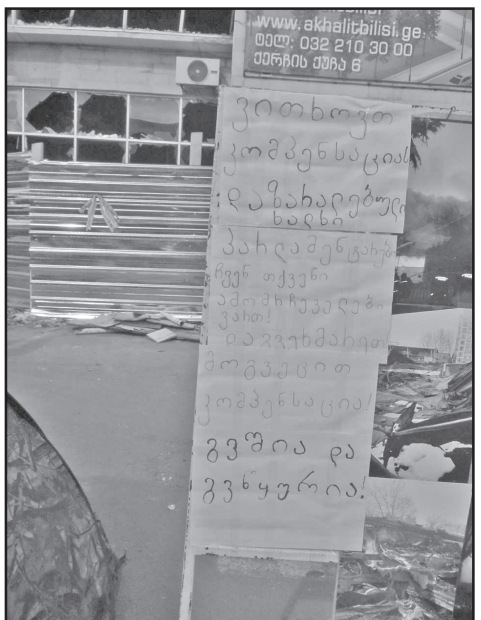 www.akhalitbilisi.ge
ტელ: 032 210 30 00
ქერჩის ქუჩა 6
ვითხოვთ
კომპენსაციას
დაზარალებული
ხალხი
პარლამენტარებო
ჩვენ თქვენი
ამომრჩევლები
ვართ!
დაგვეხმარეთ
მოგვეცით
კომპენსაცია!
გვშია და
გვწყურია!